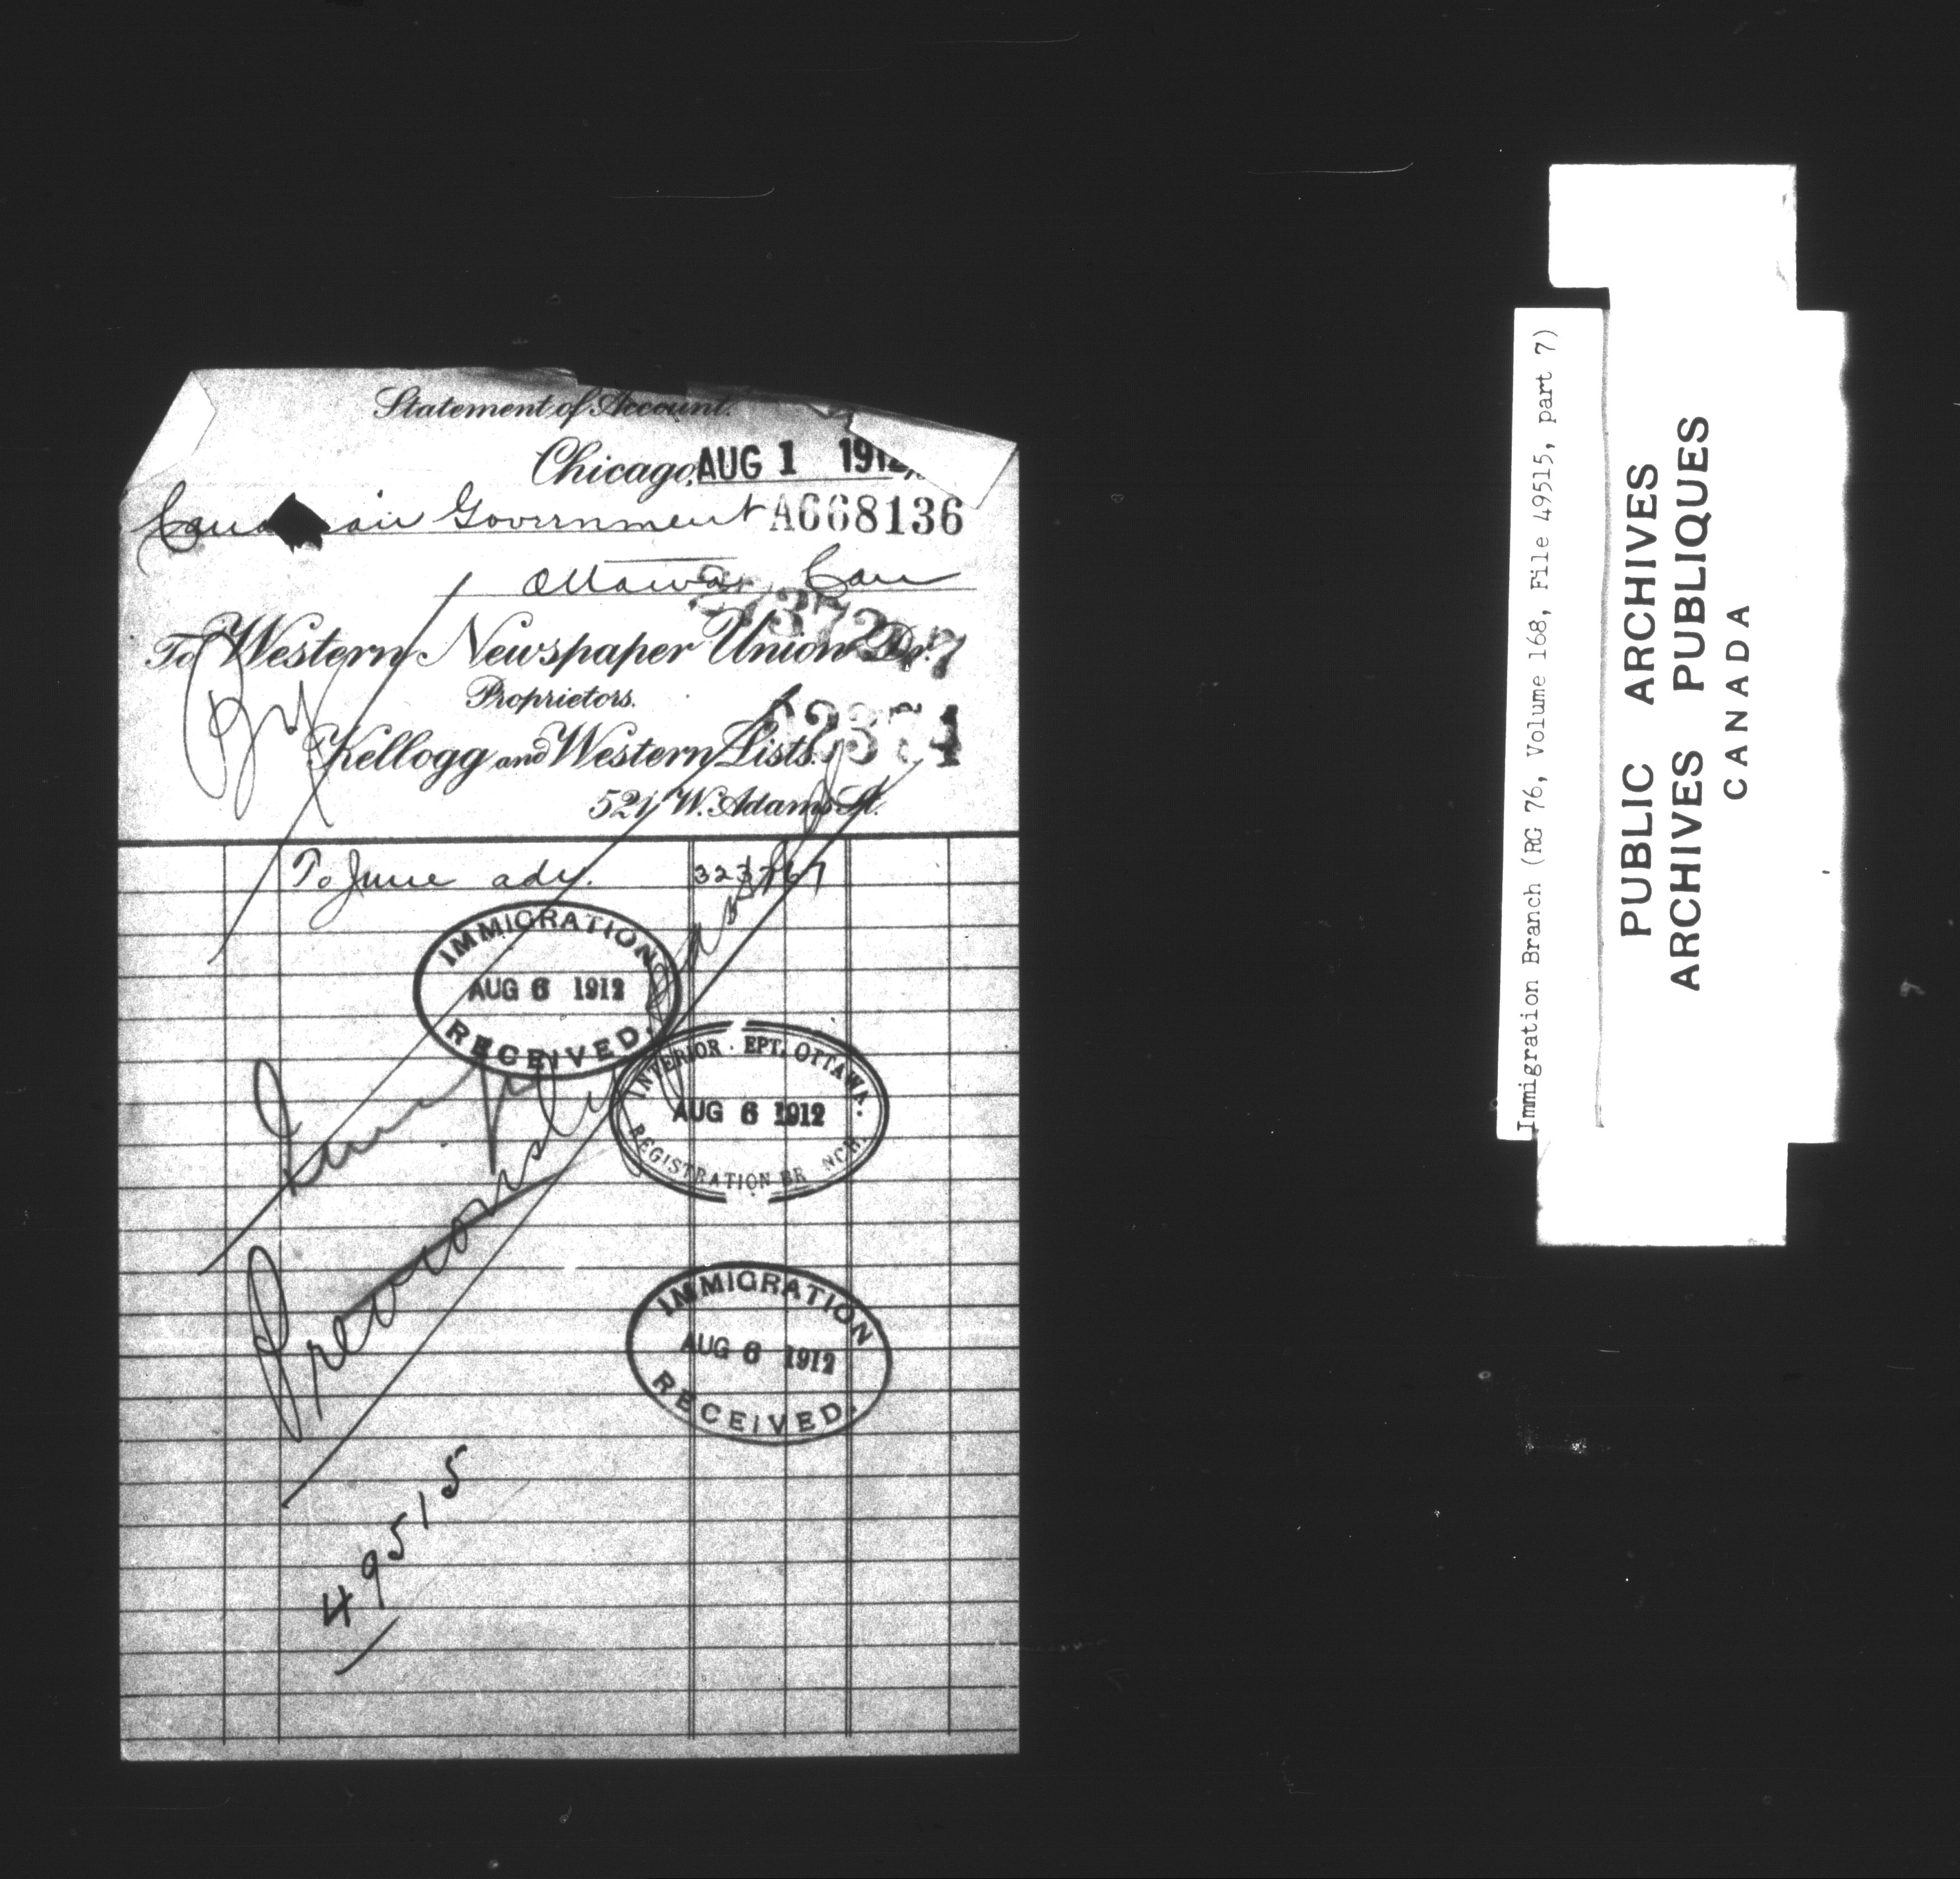 Statement of Account.
Chicago, AUG 1 1912
Government A668136
Ottawa, Can
To Western Newspaper Union Dr.
Proprietors.
Kellogg and Western Lists.
521 W. Adams St.
To June adv.
IMMIGRATION
AUG 6 1912
RECEIVED.
INTERIOR EPT. OTTAWA.
AUG 6 1912
REGISTRATION BR NCH.
Previously
IMMIGRATION
AUG 6 1912
RECEIVED.
49515
Immigration Branch (RG 76, Volume 168, File 49515, part 7)
PUBLIC ARCHIVES
ARCHIVES PUBLIQUES
CANADA